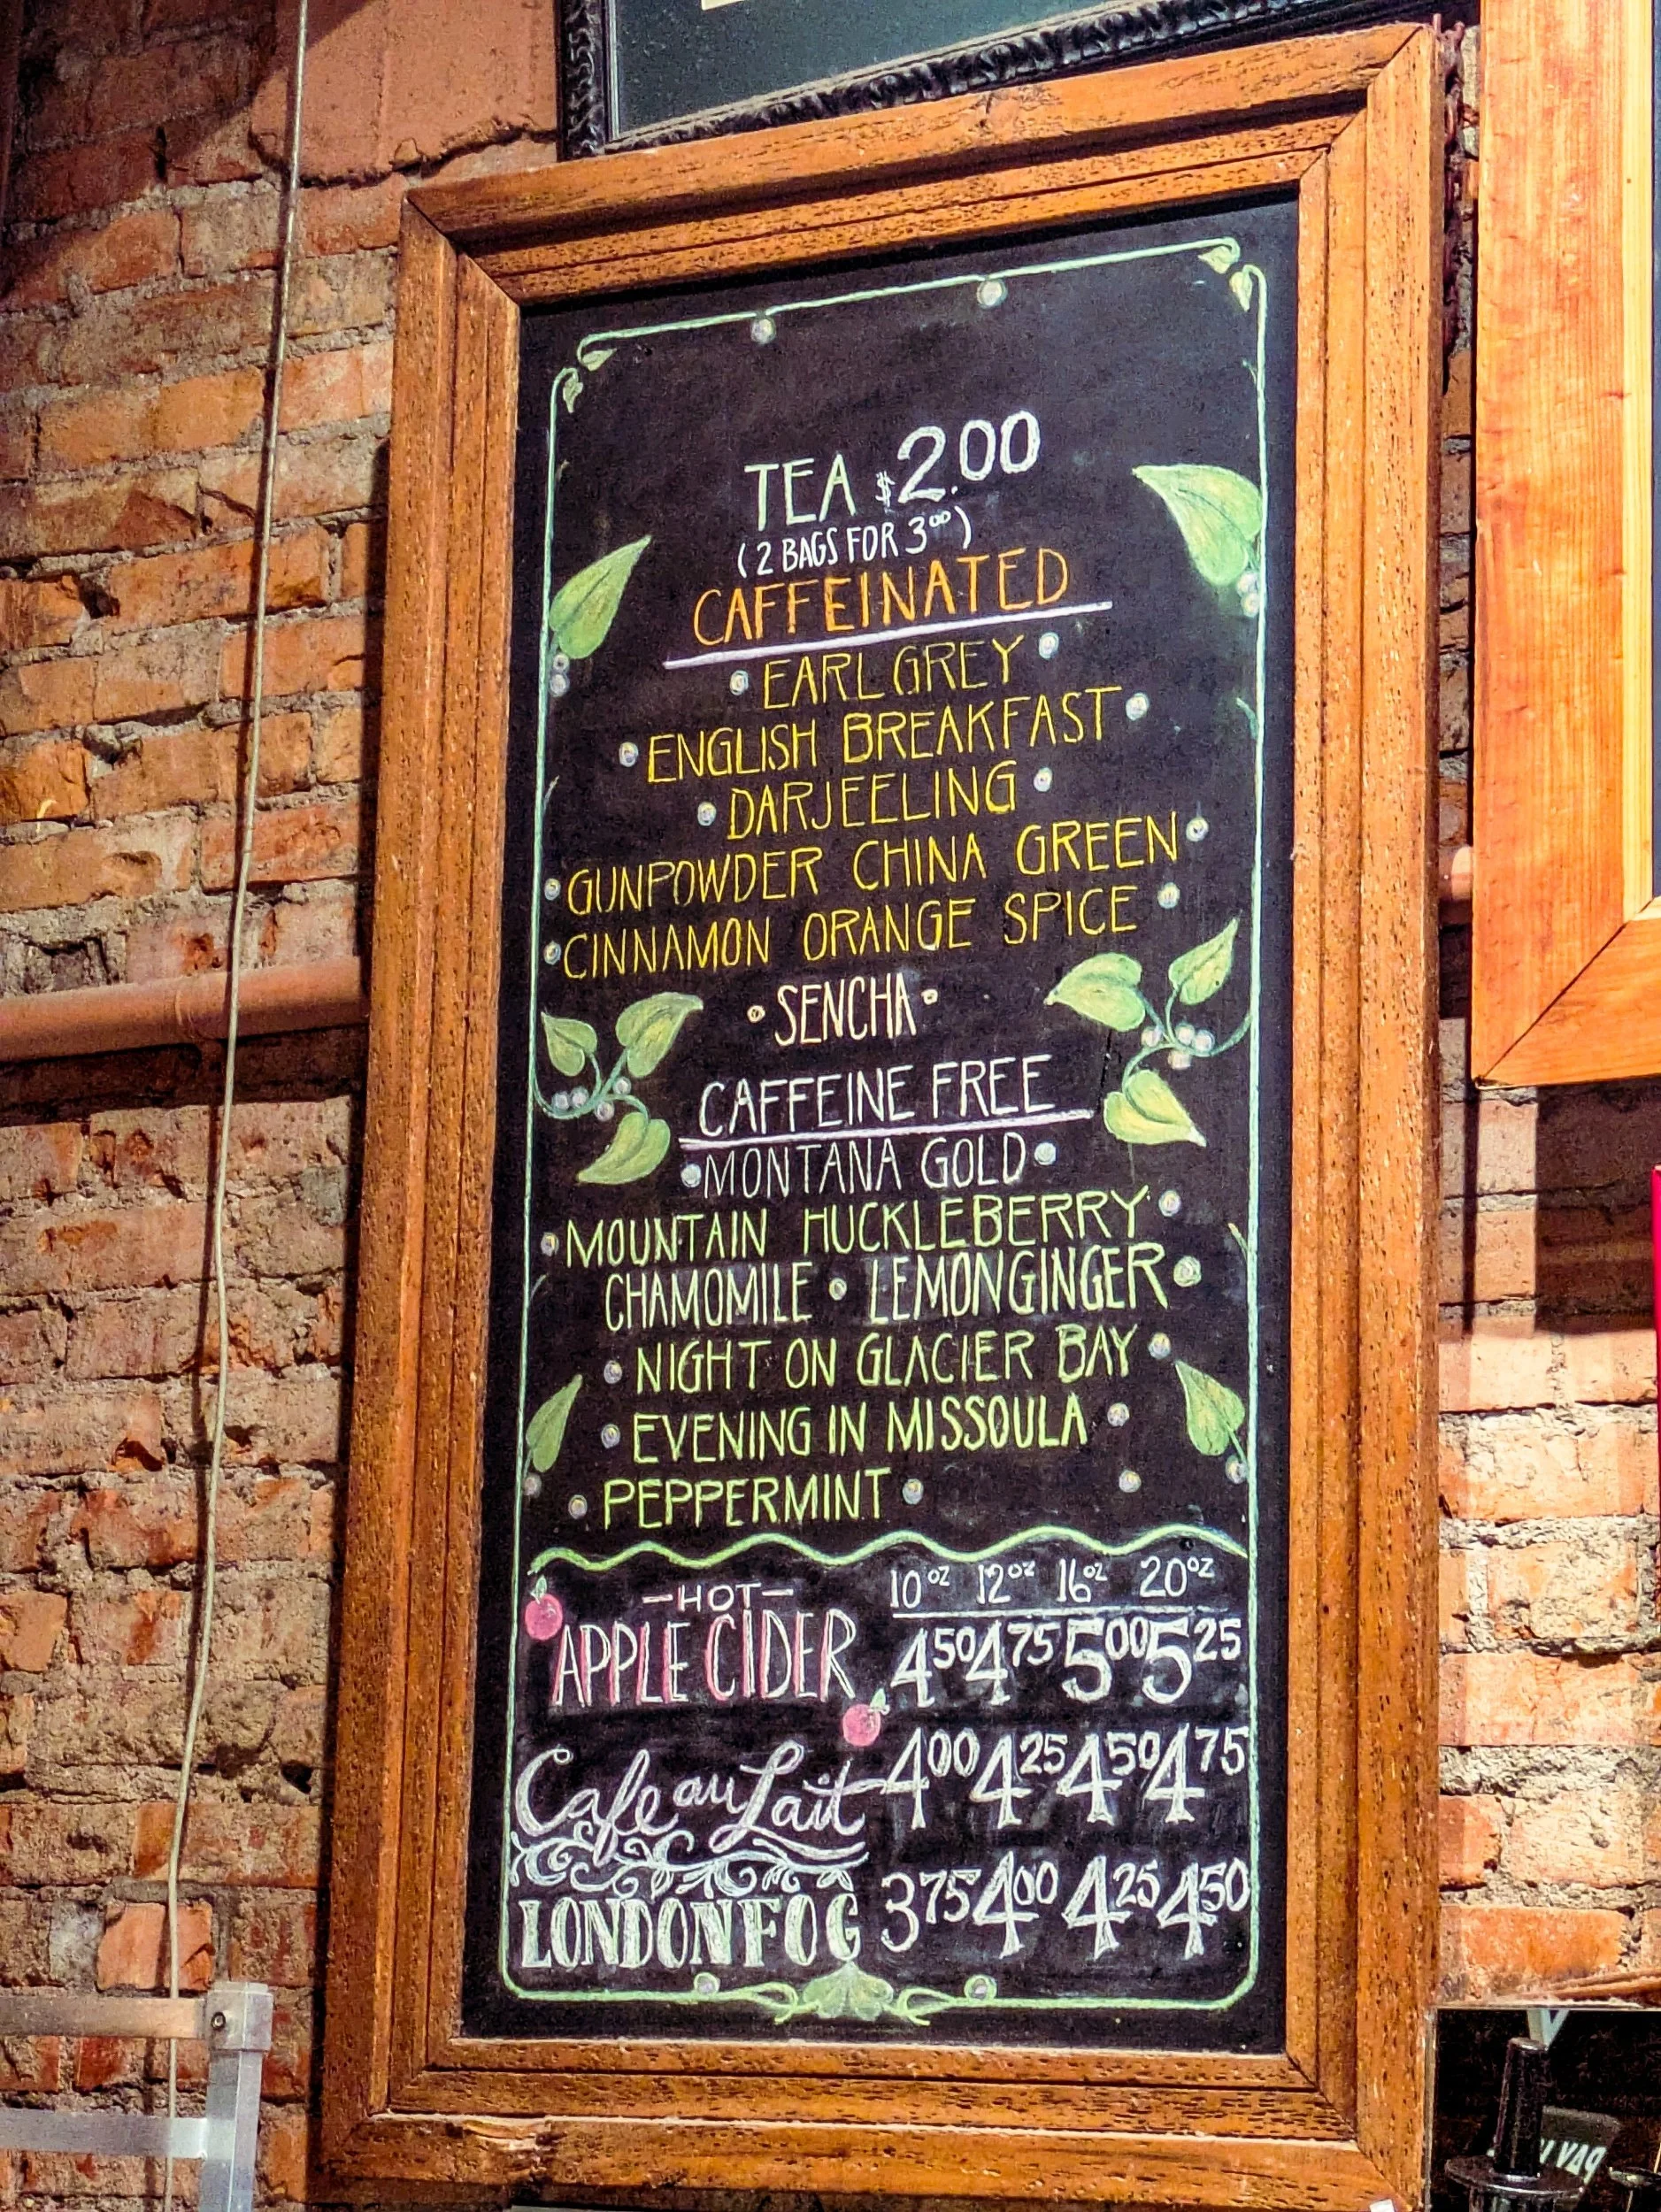 TEA $2.00
(2 BAGS FOR 3⁰⁰)
CAFFEINATED
• EARL GREY •
• ENGLISH BREAKFAST •
• DARJEELING •
• GUNPOWDER CHINA GREEN •
• CINNAMON ORANGE SPICE •
• SENCHA •
CAFFEINE FREE
• MONTANA GOLD •
• MOUNTAIN HUCKLEBERRY •
CHAMOMILE • LEMON GINGER •
• NIGHT ON GLACIER BAY •
• EVENING IN MISSOULA •
• PEPPERMINT •
10oz 12oz 16oz 20oz
—HOT—
APPLE CIDER 4⁵⁰ 4⁷⁵ 5⁰⁰ 5²⁵
Cafe au Lait 4⁰⁰ 4²⁵ 4⁵⁰ 4⁷⁵
LONDON FOG 3⁷⁵ 4⁰⁰ 4²⁵ 4⁵⁰